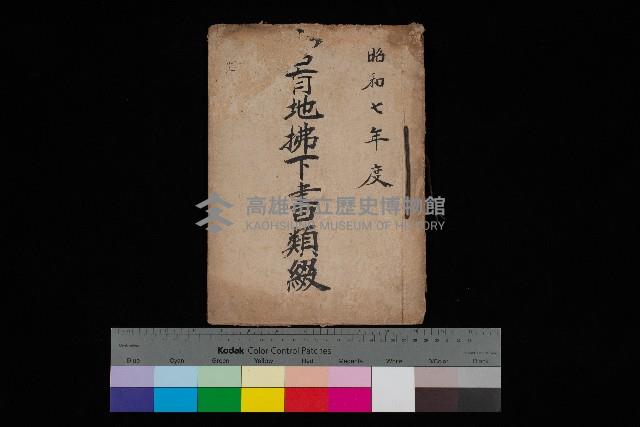 昭和七年度
地拂下書類綴
高雄市立歷史博物館
KAOHSIUNG MUSEUM OF HISTORY
Kodak Color Control Patches
Blue Cyan Green Yellow Red Magenta White 3/Color Black